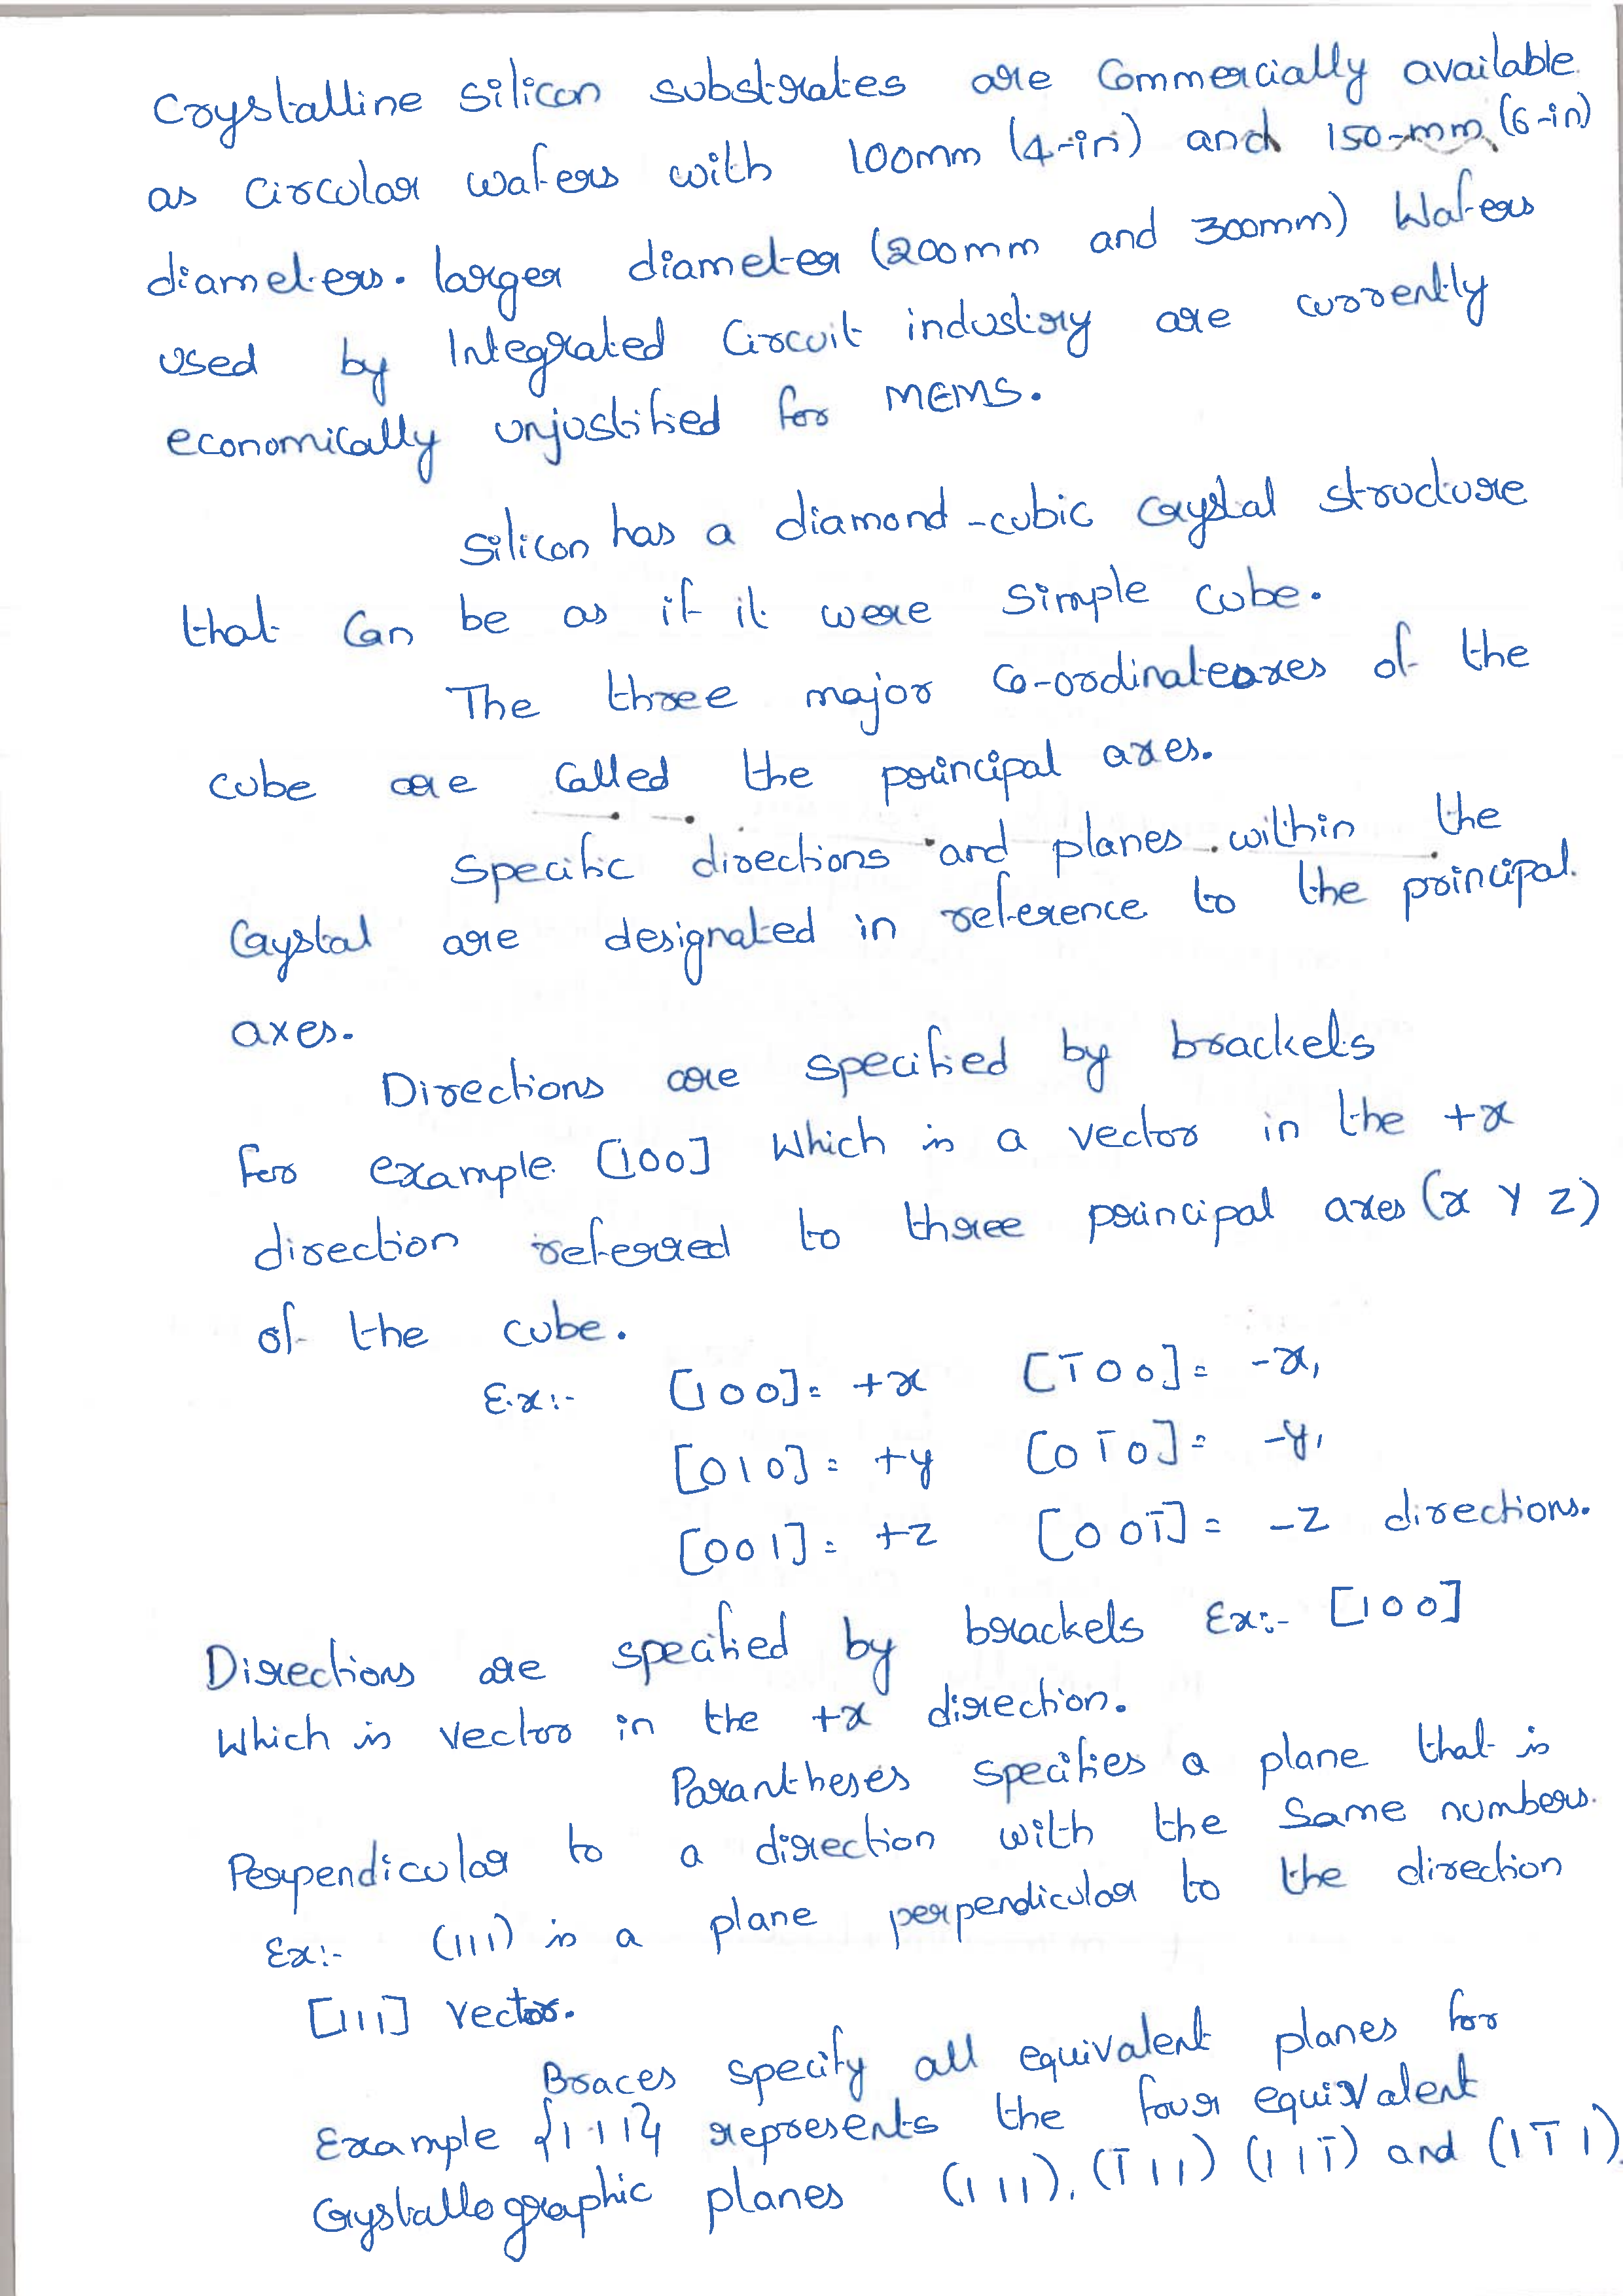 Crystalline silicon substrates are Commercially available
as Circular wafers with 100mm (4-in) and 150-mm (6-in)
diameters. larger diameter (200mm and 300mm) Wafers
used by Integrated Circuit industry are currently
economically unjustified for MEMS.
Silicon has a diamond-cubic Crystal structure
that Can be as if it were simple cube.
The three major Co-ordinateaxes of the
cube are Called the principal axes.
Specific directions and planes within the
Crystal are designated in reference to the principal.
axes.
Directions are specified by brackets
for example [100] Which is a vector in the +x
direction referred to three principal axes (x Y Z)
of the cube.
Ex:- [100]= +x [1̅00]= -x,
[010]= +y [01̅0]= -y,
[001]= +z [001̅]= -z directions.
Directions are specified by brackets Ex:- [100]
Which is vector in the +x direction.
Parantheses specifies a plane that is
Perpendicular to a direction with the Same numbers.
Ex:- (111) is a plane perpendicular to the direction
[111] vector.
Braces specify all equivalent planes for
Example {111} represents the four equivalent
Crystallographic planes (111), (1̅11) (111̅) and (11̅1).